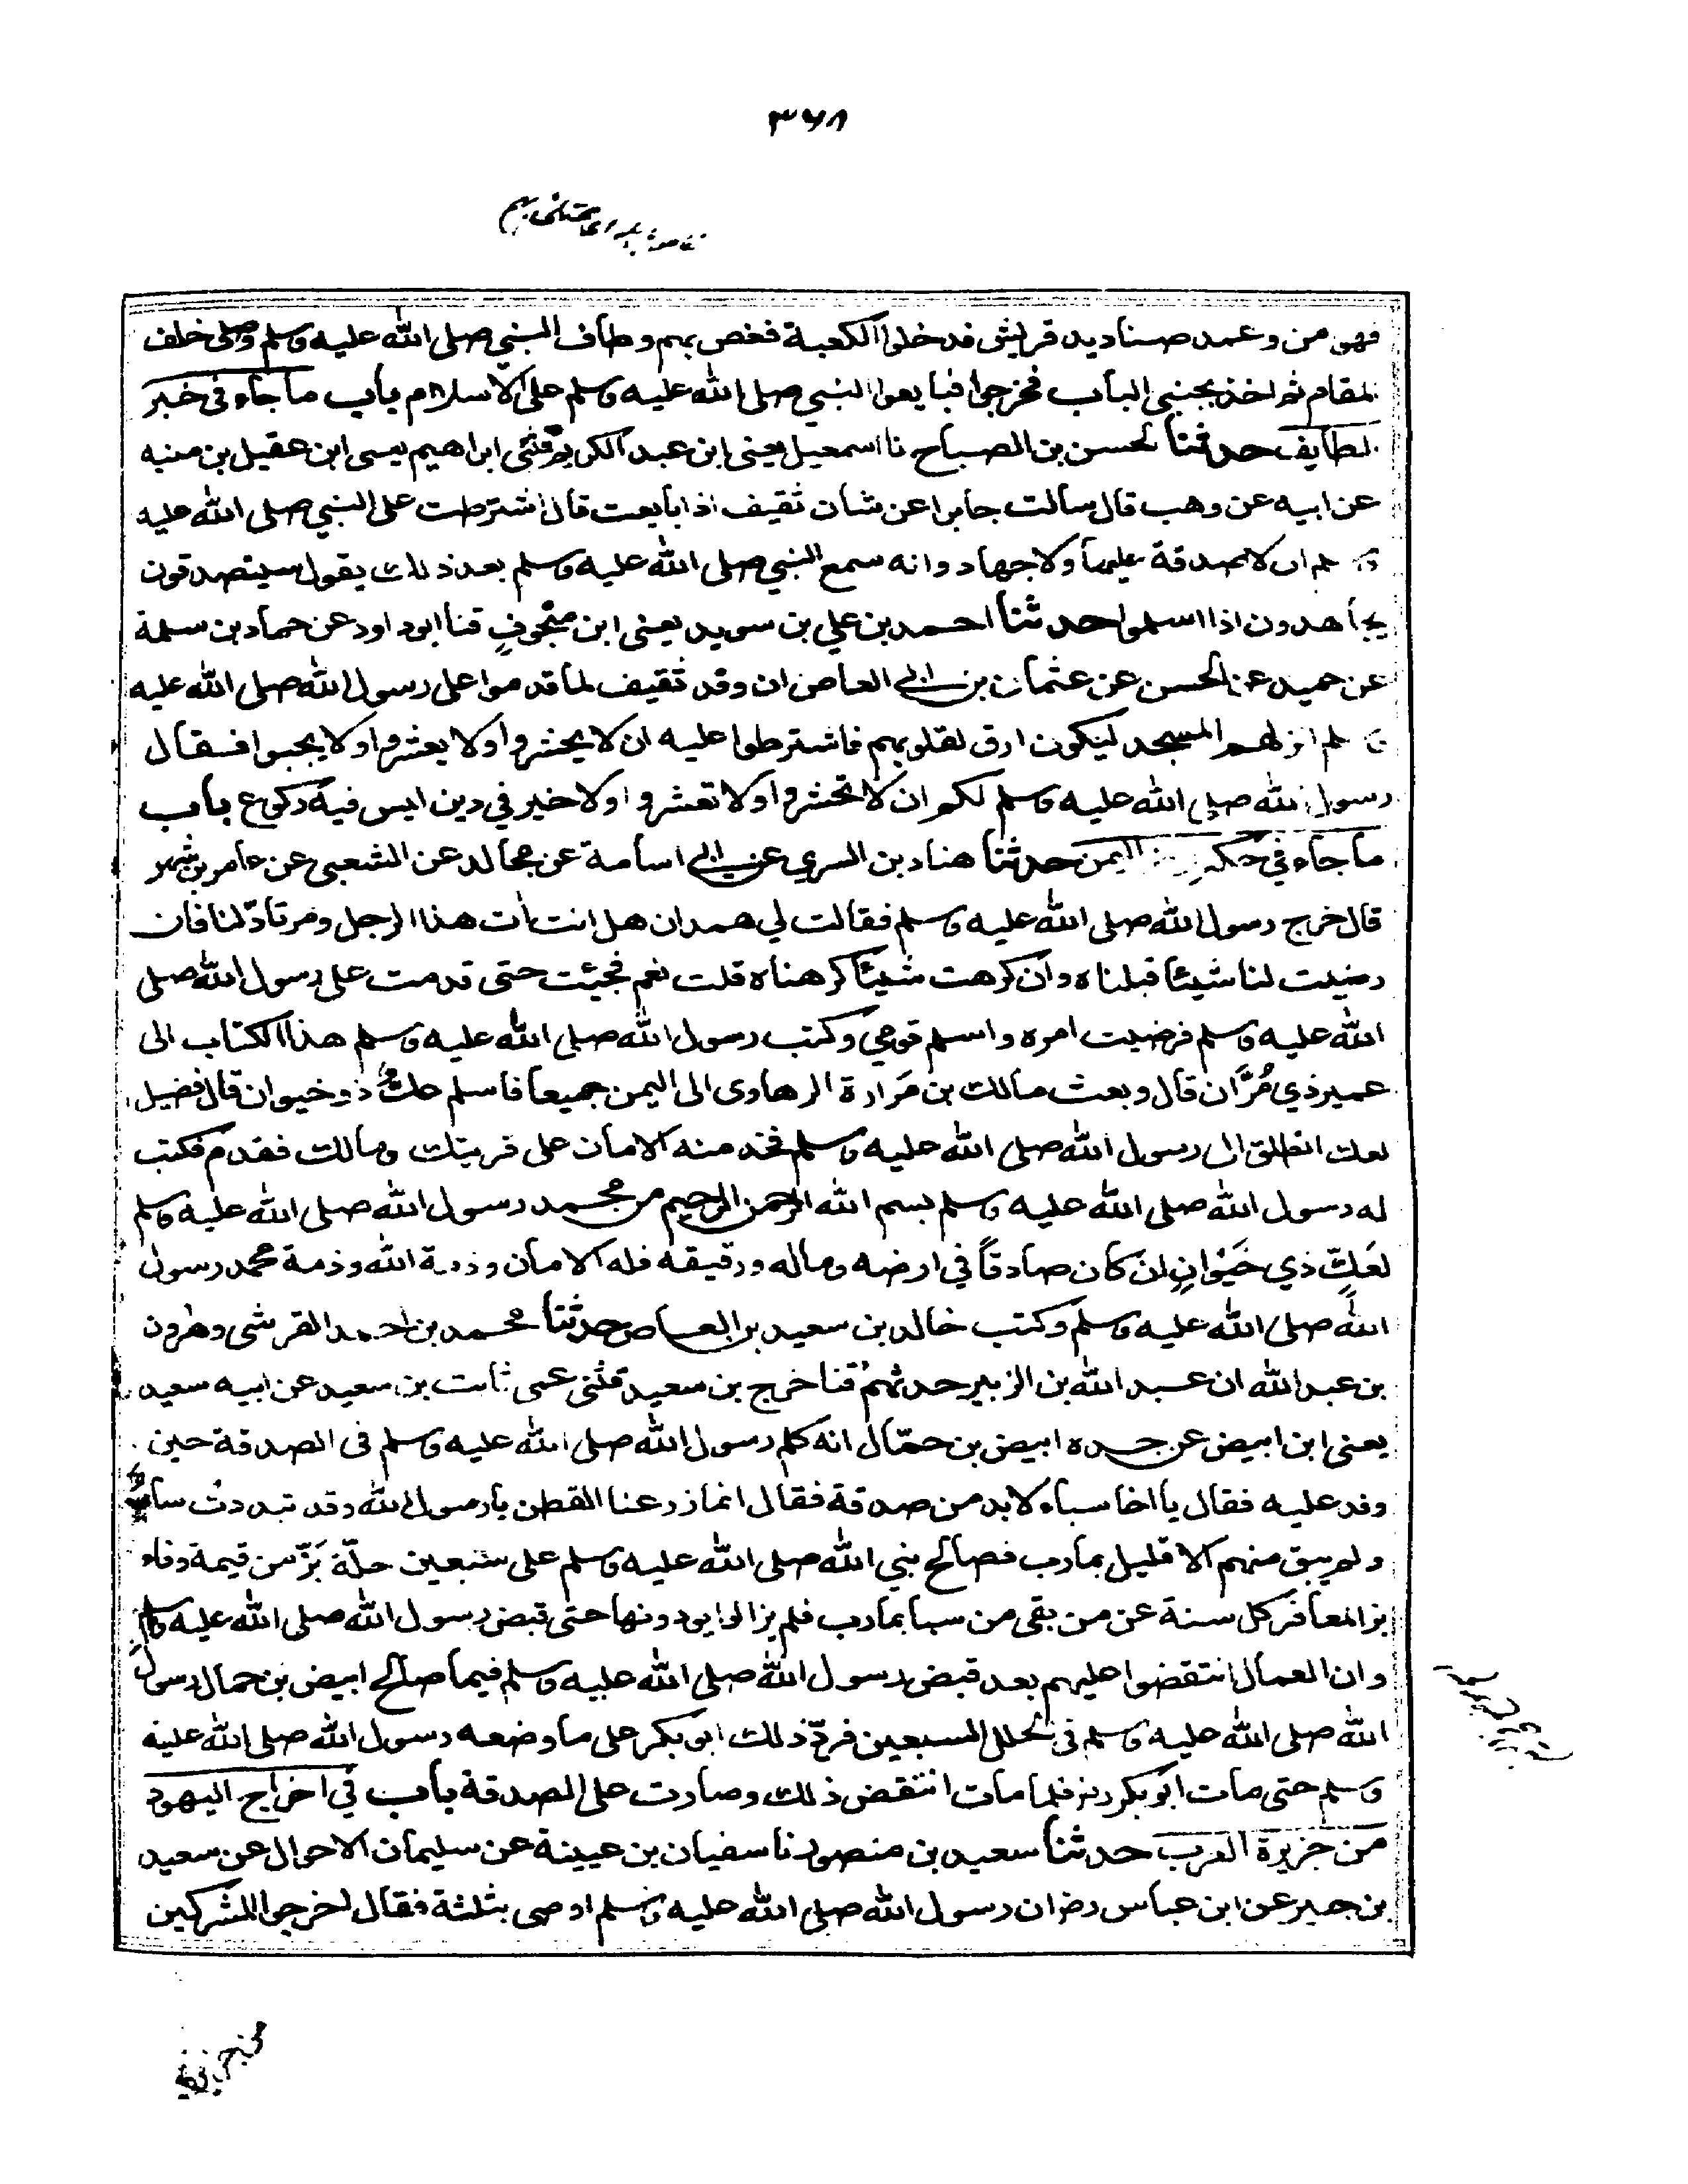 ٣٦٨
فهو من وعمد صناديد قريش فدخلوا الكعبة فغص بهم وطاف النبي صلى الله عليه وسلم وصلى خلف
المقام ثم اخذ بجنبي الباب فخرجوا فبايعوا النبي صلى الله عليه وسلم على الاسلام باب ما جاء في خبر
الطايف حدثنا الحسن بن الصباح نا اسمعيل يعنى ابن عبد الكريم قثنى ابراهيم يعنى ابن عقيل بن منبه
عن ابيه عن وهب قال سالت جابرا عن شان ثقيف اذ بايعت قال اشترطت على النبي صلى الله عليه
وسلم ان لا صدقة عليها ولا جهاد وانه سمع النبي صلى الله عليه وسلم بعد ذلك يقول سيتصدقون
يجاهدون اذا اسلموا حدثنا احمد بن علي بن سويد يعنى ابن منجوف قنا ابو داود عن حماد بن سلمة
عن حميد عن الحسن عن عثمان بن ابي العاص ان وفد ثقيف لما قدموا على رسول الله صلى الله عليه
وسلم انزلهم المسجد ليكون ارق لقلوبهم فاشترطوا عليه ان لا يحشروا ولا يعشروا ولا يجبوا فقال
رسول الله صلى الله عليه وسلم لكم ان لا تحشروا ولا تعشروا ولا خير في دين ليس فيه ركوع باب
ما جاء في حكم ارض اليمن حدثنا هناد بن السري عن ابي اسامة عن مجالد عن الشعبي عن عامر بن شهر
قال خرج رسول الله صلى الله عليه وسلم فقالت لي همدان هل انت ات هذا الرجل ومرتاد لنا فان
رضيت لنا شيئا قبلناه وان كرهت شيئا كرهناه قلت نعم فجئت حتى قدمت على رسول الله صلى
الله عليه وسلم فرضيت امره واسلم قومي وكتب رسول الله صلى الله عليه وسلم هذا الكتاب الى
عمير ذي مُرَّان قال وبعث مالك بن مَرارة الرهاوى الى اليمن جميعا فاسلم عك ذو خيوان قال فقيل
لعك انطلق الى رسول الله صلى الله عليه وسلم فخذ منه الامان على قريتك ومالك فقدم فكتب
له رسول الله صلى الله عليه وسلم بسم الله الرحمن الرحيم من محمد رسول الله صلى الله عليه وسلم
لعَكٍّ ذي خَيْوَان ان كان صادقاً في ارضه وماله ورقيقه فله الامان وذمة الله وذمة محمد رسول
الله صلى الله عليه وسلم وكتب خالد بن سعيد بن العاص حدثنا محمد بن احمد القرشى وهرون
بن عبد الله ان عبد الله بن الزبير حدثهم قنا فرج بن سعيد قثنى عمى ثابت بن سعيد عن ابيه سعيد
يعنى ابن ابيض عن جده ابيض بن حمّال انه كلم رسول الله صلى الله عليه وسلم فى الصدقة حين
وفد عليه فقال يا اخا سباء لابد من صدقة فقال انما زرعنا القطن يا رسول الله وقد تبددت سبأ
ولم يبق منهم الا قليل بمارب فصالح نبي الله صلى الله عليه وسلم على سبعين حلّة بَزّ من قيمة وفاء
بز المعافر كل سنة عن من بقى من سبا بمارب فلم يزالوا يودونها حتى قبض رسول الله صلى الله عليه وسلم
وان العمال انتقضوا عليهم بعد قبض رسول الله صلى الله عليه وسلم فيما صالح ابيض بن حمال رسول
الله صلى الله عليه وسلم فى الحلل السبعين فردّ ذلك ابو بكر على ما وضعه رسول الله صلى الله عليه
وسلم حتى مات ابو بكر رض فلما مات انتقض ذلك وصارت على الصدقة باب في اخراج اليهود
من جزيرة العرب حدثنا سعيد بن منصور نا سفيان بن عيينة عن سليمان الاحول عن سعيد
بن جبير عن ابن عباس رض ان رسول الله صلى الله عليه وسلم اوصى بثلثة فقال اخرجوا المشركين